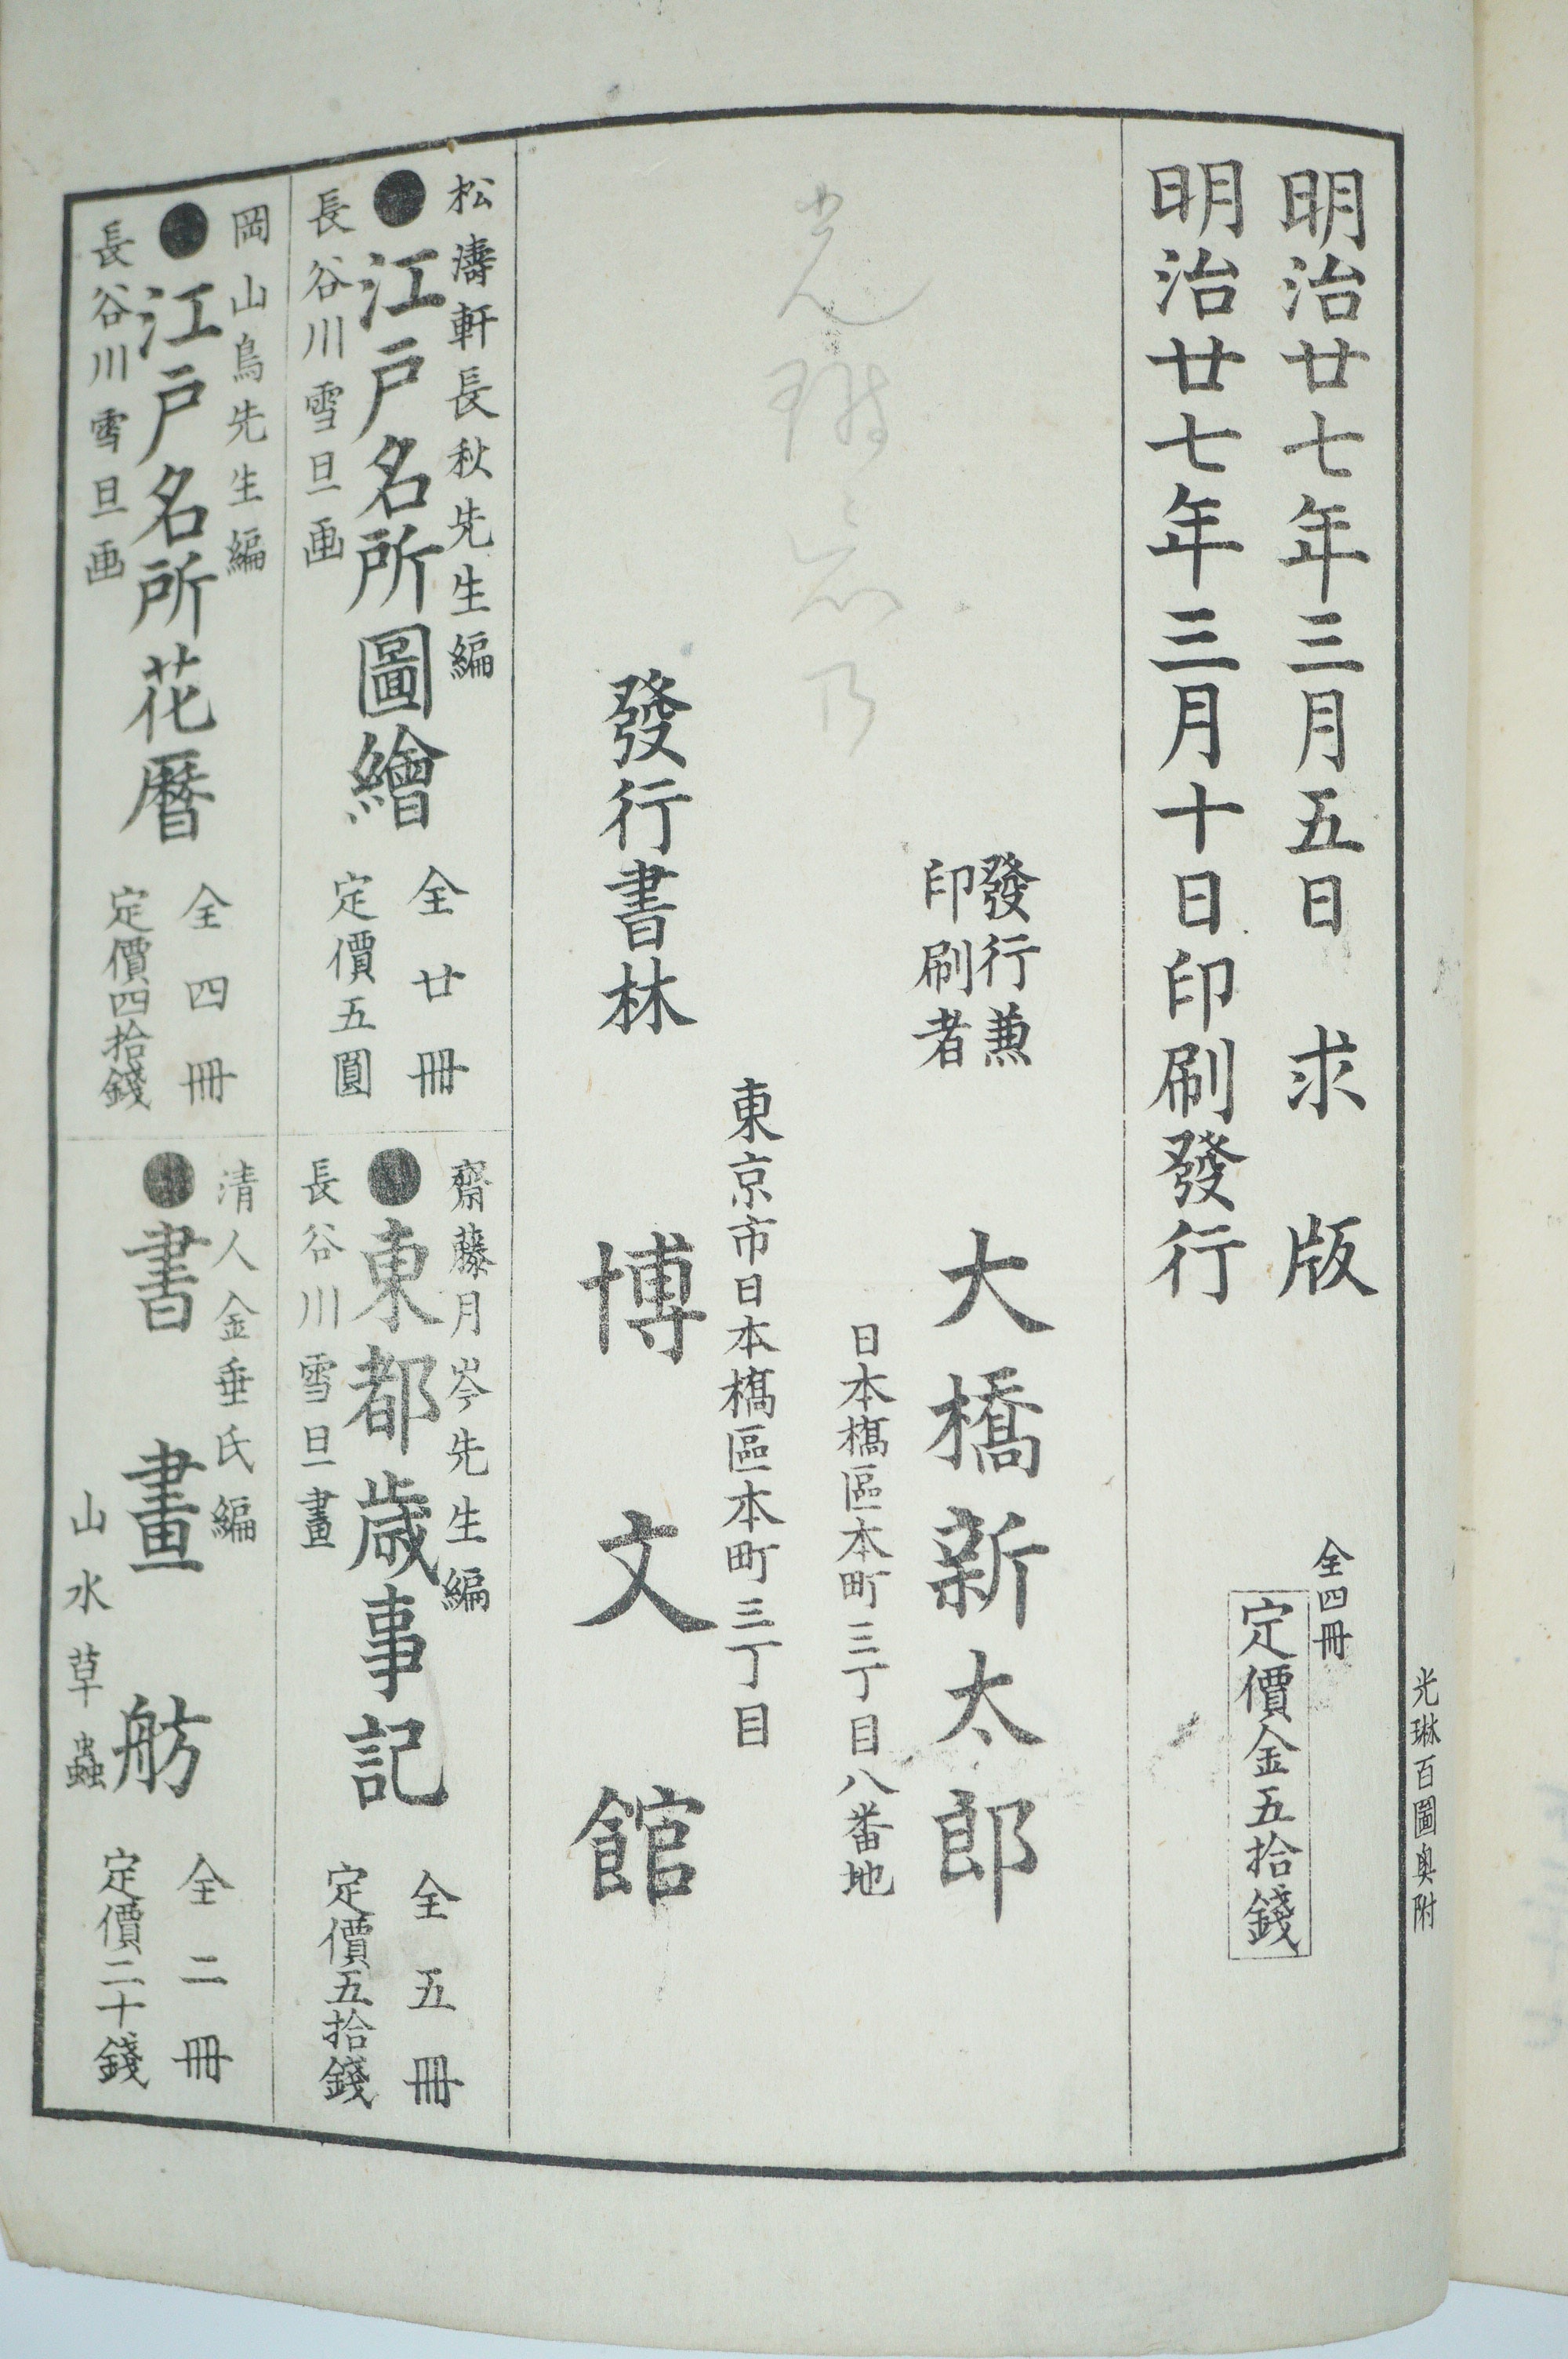 光琳百圖奥附
明治廿七年三月五日 求版
明治廿七年三月十日印刷發行
全四冊
定價金五拾錢
發行兼
印刷者
大橋新太郎
日本橋區本町三丁目八番地
東京市日本橋區本町三丁目
發行書林 博文館
松濤軒長秋先生編
●江戸名所圖繪
長谷川雪旦画
全廿冊
定價五圓
齋藤月岑先生編
●東都歳事記
長谷川雪旦畫
全五冊
定價五拾錢
岡山鳥先生編
●江戸名所花暦
長谷川雪旦画
全四冊
定價四拾錢
清人金垂氏編
●書畫舫
山水草蟲
全二冊
定價二十錢